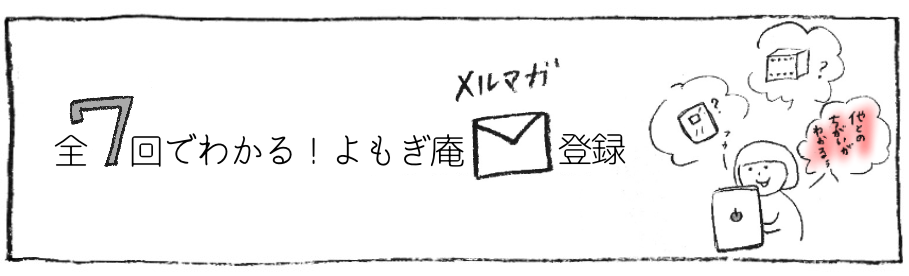 メルマガ
全7回でわかる！よもぎ庵登録
?
?
他との
ちがいが
わかるぅ